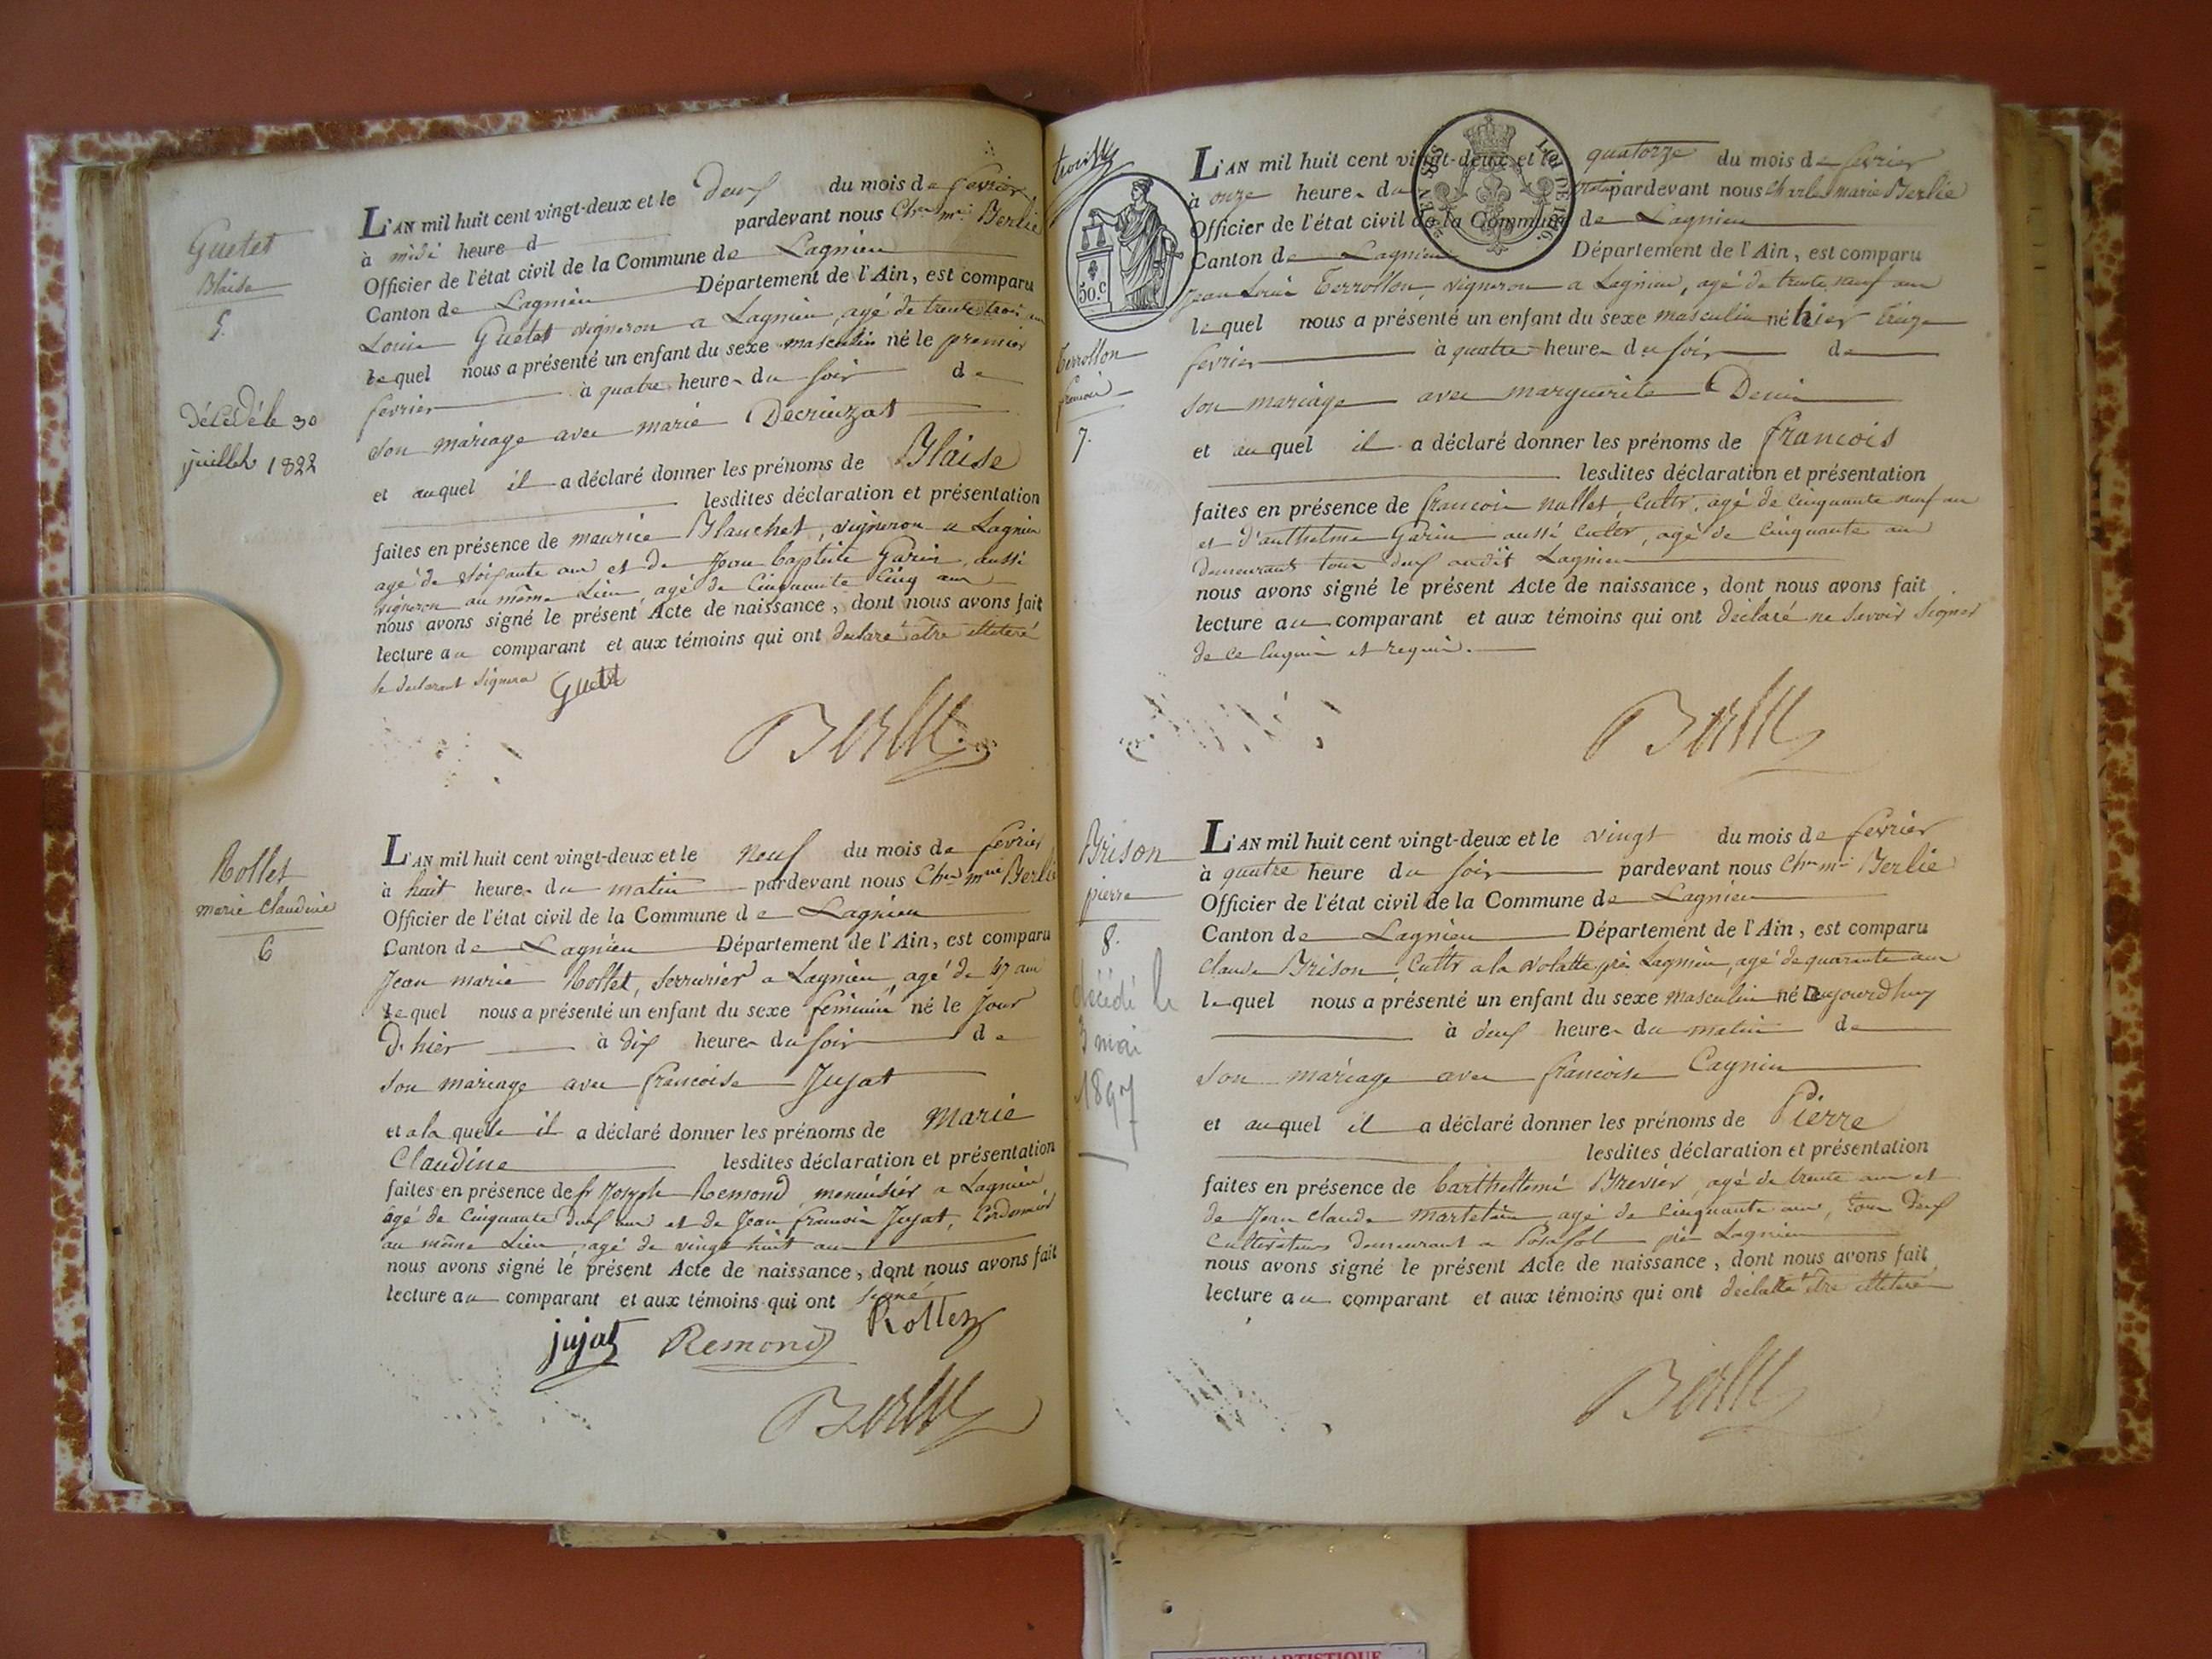 Guetet
Blaise
5.
Décédé le 30
juillet 1822
L'AN mil huit cent vingt-deux et le deux du mois de fevrier
à midi heure d pardevant nous Chles mie Berlie
Officier de l'état civil de la Commune de Lagnieu
Canton de Lagnieu Département de l'Ain, est comparu
Louis Guetet vigneron a Lagnieu, agé de trente trois ans
lequel nous a présenté un enfant du sexe masculin né le premier
fevrier à quatre heures du soir de
son mariage avec marie Decriuzat
et auquel il a déclaré donner les prénoms de Blaise
lesdites déclaration et présentation
faites en présence de maurice Blanchet, vigneron a Lagnieu
agé de soixante ans et de Jean Baptiste Garin, aussi
vigneron au même Lieu, agé de Cinquante Cinq ans
nous avons signé le présent Acte de naissance, dont nous avons fait
lecture au comparant et aux témoins qui ont declaré être illeteré
le declarant signera Guetet
Berlie
Rollet
marie Claudine
6
L'AN mil huit cent vingt-deux et le neuf du mois de fevrier
à huit heures du matin pardevant nous Chles mie Berlie
Officier de l'état civil de la Commune de Lagnieu
Canton de Lagnieu Département de l'Ain, est comparu
Jean marie Rollet, Serrurier a Lagnieu, agé de 47 ans
lequel nous a présenté un enfant du sexe féminin né le Jour
D'hier à dix heures du soir de
son mariage avec francoise Jujat
et a la quelle il a déclaré donner les prénoms de Marie
Claudine lesdites déclaration et présentation
faites en présence de fr Joseph Remond, menuisier a Lagnieu
agé de Cinquante deux ans et de Jean francois Jujat, Cordonnier
au même Lieu, agé de vingt huit ans
nous avons signé le présent Acte de naissance, dont nous avons fait
lecture au comparant et aux témoins qui ont signé
jujat Remond Rollet
Berlie
50.c
LOI DE 1816.
Terrollon
francois
7.
L'AN mil huit cent vingt-deux et le quatorze du mois de fevrier
à onze heures du matin pardevant nous Charles marie Berlie
Officier de l'état civil de la Commune de Lagnieu
Canton de Lagnieu Département de l'Ain, est comparu
Jean Louis Terrollon, vigneron a Lagnieu, agé de trente neuf ans
lequel nous a présenté un enfant du sexe masculin né hier treize
fevrier à quatre heures du soir de
son mariage avec marguerite Denis
et auquel il a déclaré donner les prénoms de francois
lesdites déclaration et présentation
faites en présence de francois nallet, Cultr, agé de Cinquante neuf ans
et d'anthelme Garin aussi Cultr, agé de Cinquante ans
demeurant tous deux audit Lagnieu
nous avons signé le présent Acte de naissance, dont nous avons fait
lecture au comparant et aux témoins qui ont déclaré ne savoir signer
de ce Enquis et requis.
Berlie
Brison
pierre
8.
décédé le
3 mai
1897
L'AN mil huit cent vingt-deux et le vingt du mois de fevrier
à quatre heure du soir pardevant nous Chles mie Berlie
Officier de l'état civil de la Commune de Lagnieu
Canton de Lagnieu Département de l'Ain, est comparu
Claude Brison, Cultr a la Volatte près Lagnieu, agé de quarante ans
lequel nous a présenté un enfant du sexe masculin né aujourdhuy
à deux heures du matin de
son mariage avec francoise Cagnin
et auquel il a déclaré donner les prénoms de Pierre
lesdites déclaration et présentation
faites en présence de barthellemi Brevier, agé de trente ans et
de Jean Claude Martelin agé de Cinquante ans, tous deux
Cultivateurs demeurant a Posafol près Lagnieu
nous avons signé le présent Acte de naissance, dont nous avons fait
lecture au comparant et aux témoins qui ont déclaré être illeteré
Berlie